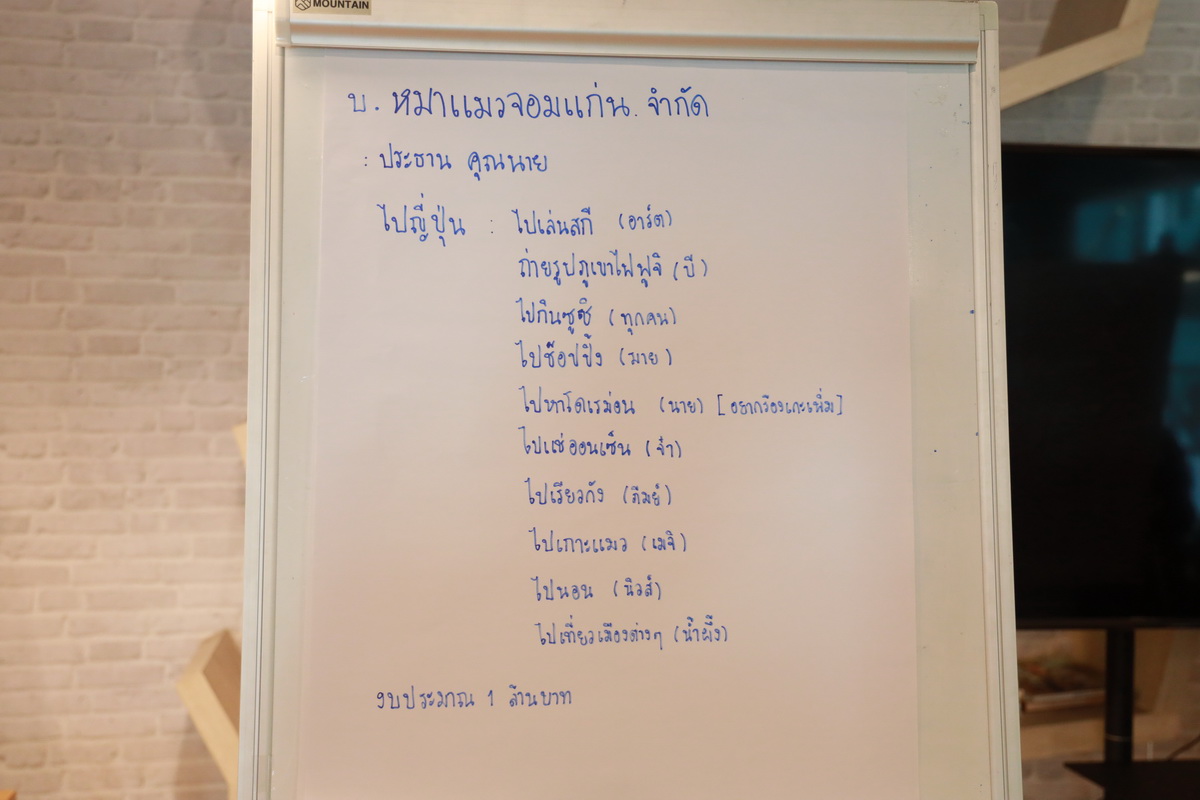 MOUNTAIN
บ. หมาแมวจอมแก่น. จำกัด
: ประธาน คุณนาย
ไปญี่ปุ่น : ไปเล่นสกี (อาร์ต)
ถ่ายรูปภูเขาไฟฟูจิ (บี)
ไปกินซูชิ (ทุกคน)
ไปช็อปปิ้ง (มาย)
ไปหาโดเรม่อน (นาย) [อยากร้องเกะเพิ่ม]
ไปแช่ออนเซ็น (จ๋า)
ไปเรียวกัง (ภีมย์)
ไปเกาะแมว (เมจิ)
ไปนอน (นิวส์)
ไปเที่ยวเมืองต่างๆ (น้ำผึ้ง)
งบประมาณ 1 ล้านบาท